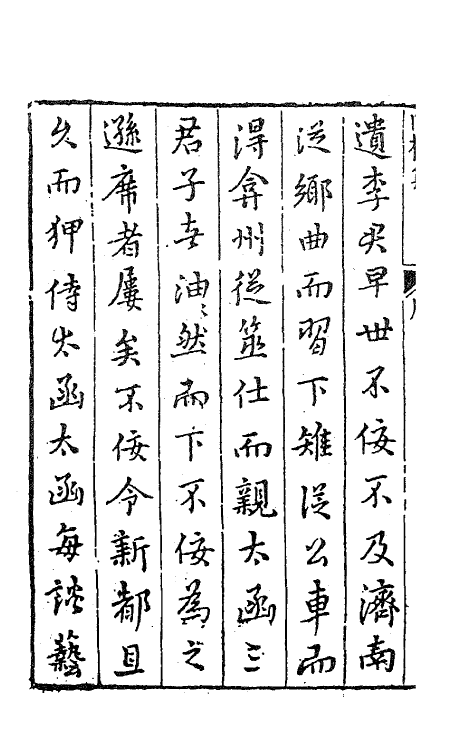 遺李君早世不佞不及濟南
從鄉曲而習下雉從公車而
得弇州從筮仕而親太函三
君子者油〻然而下不佞為之
遜席者屢矣不佞令新都且
久而狎侍太函太函每談藝
序